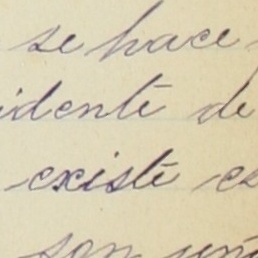 se hace
idente de
existe es
son una